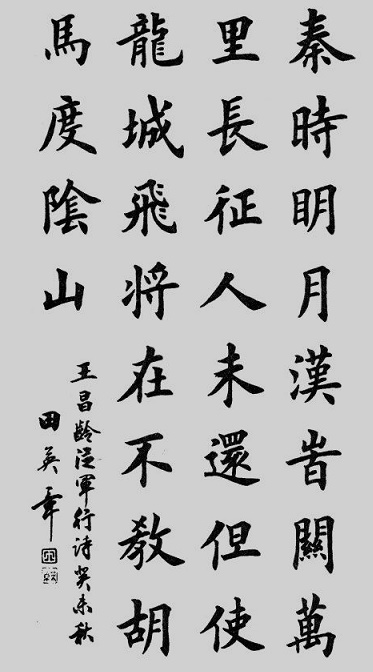 秦時明月漢旹關萬
里長征人未還但使
龍城飛将在不教胡
馬度陰山
王昌龄從軍行诗癸未秋
田英章